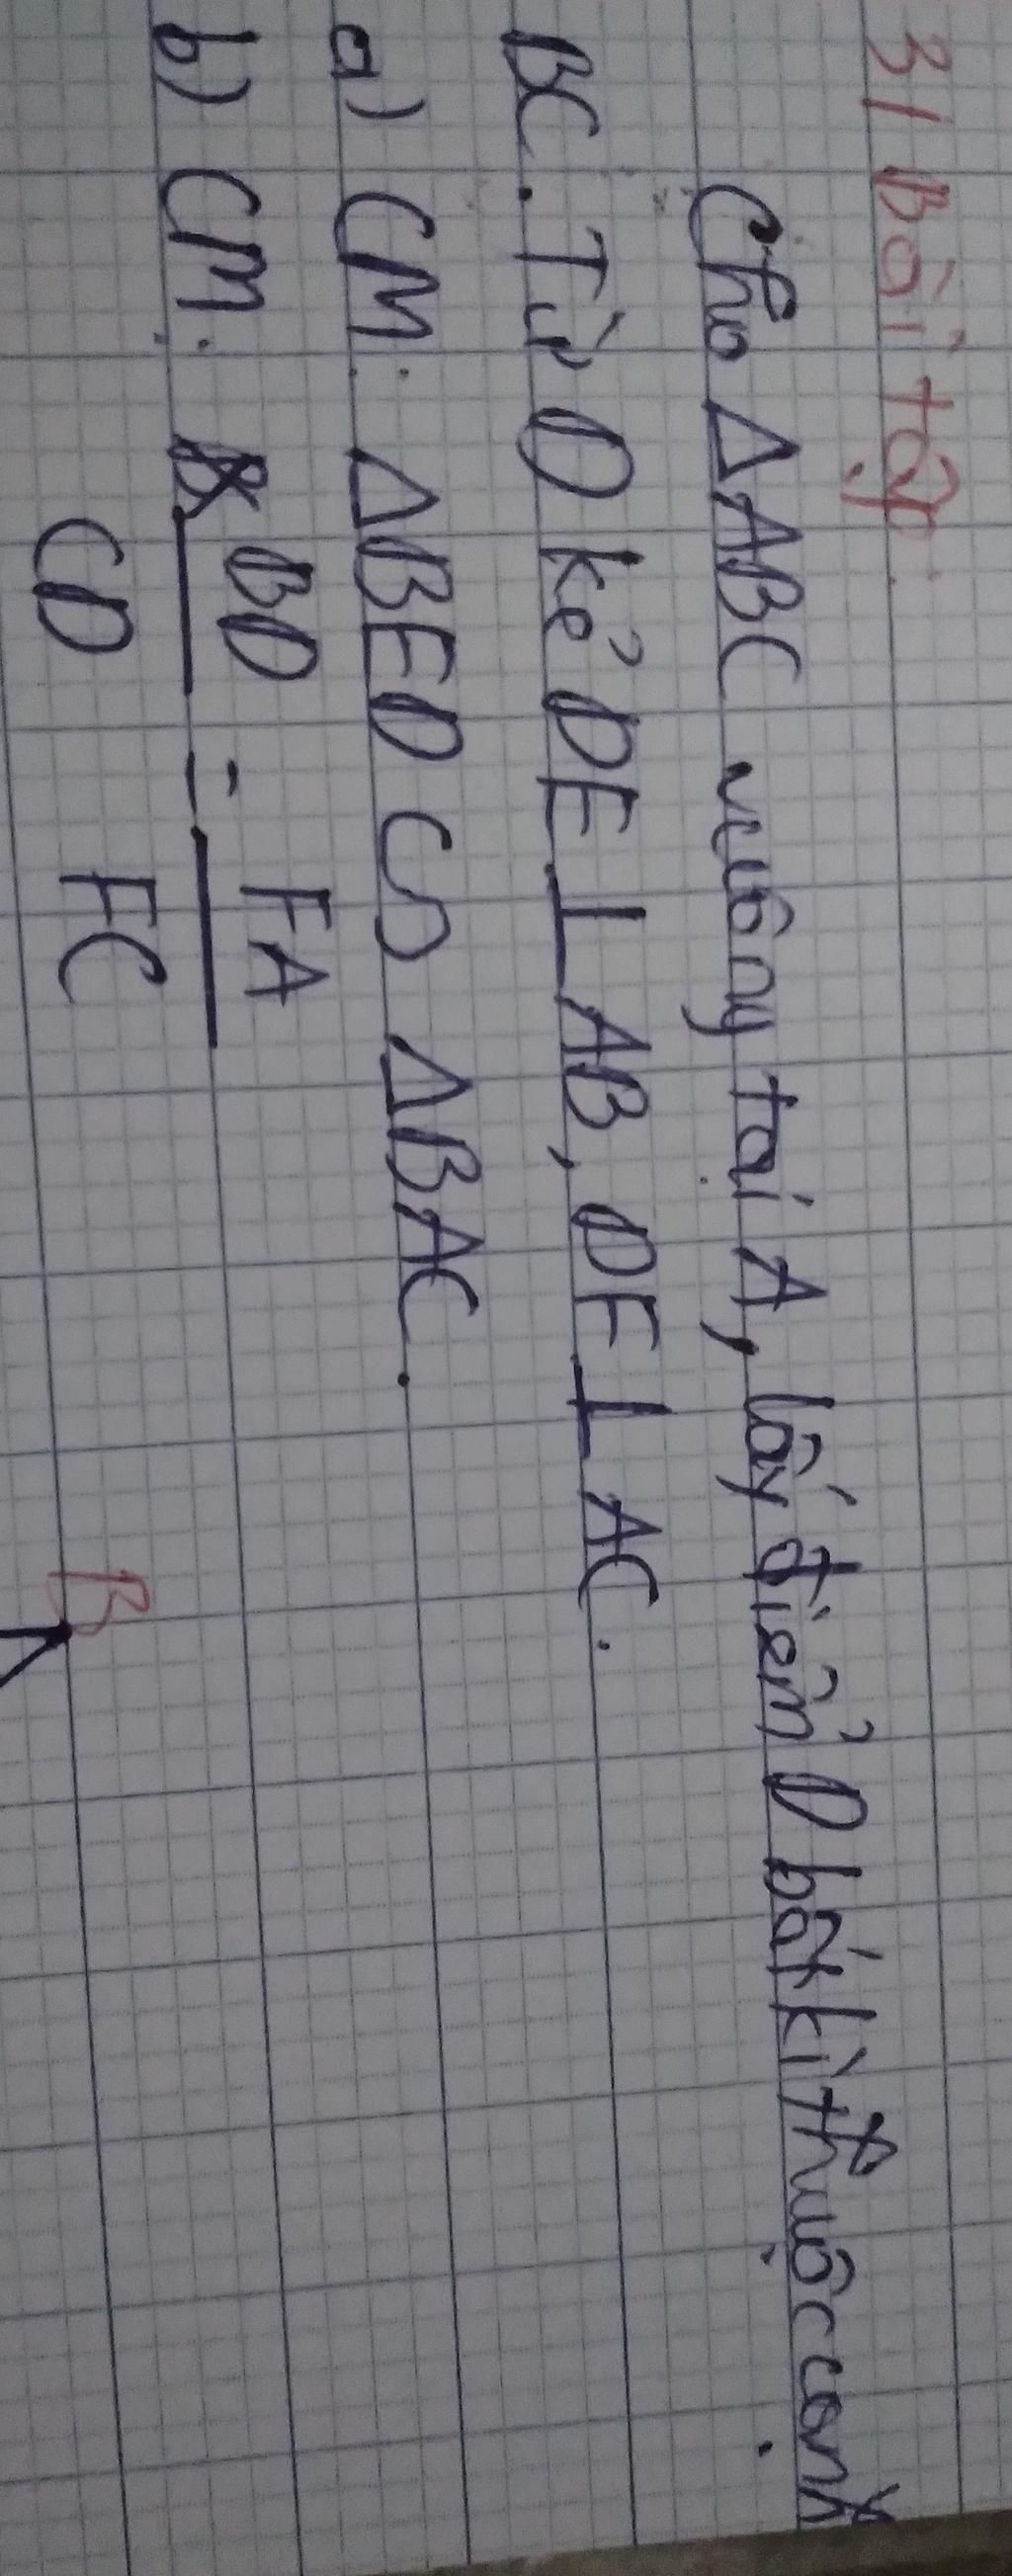 3/ Bài tập:
Cho ΔABC vuông tại A, lấy điểm D bất kì thuộc cạnh
BC. Từ D kẻ DE ⊥ AB, DF ⊥ AC.
a) CM: ΔBED ∽ ΔBAC.
b) CM: BD/CD = FA/FC
B